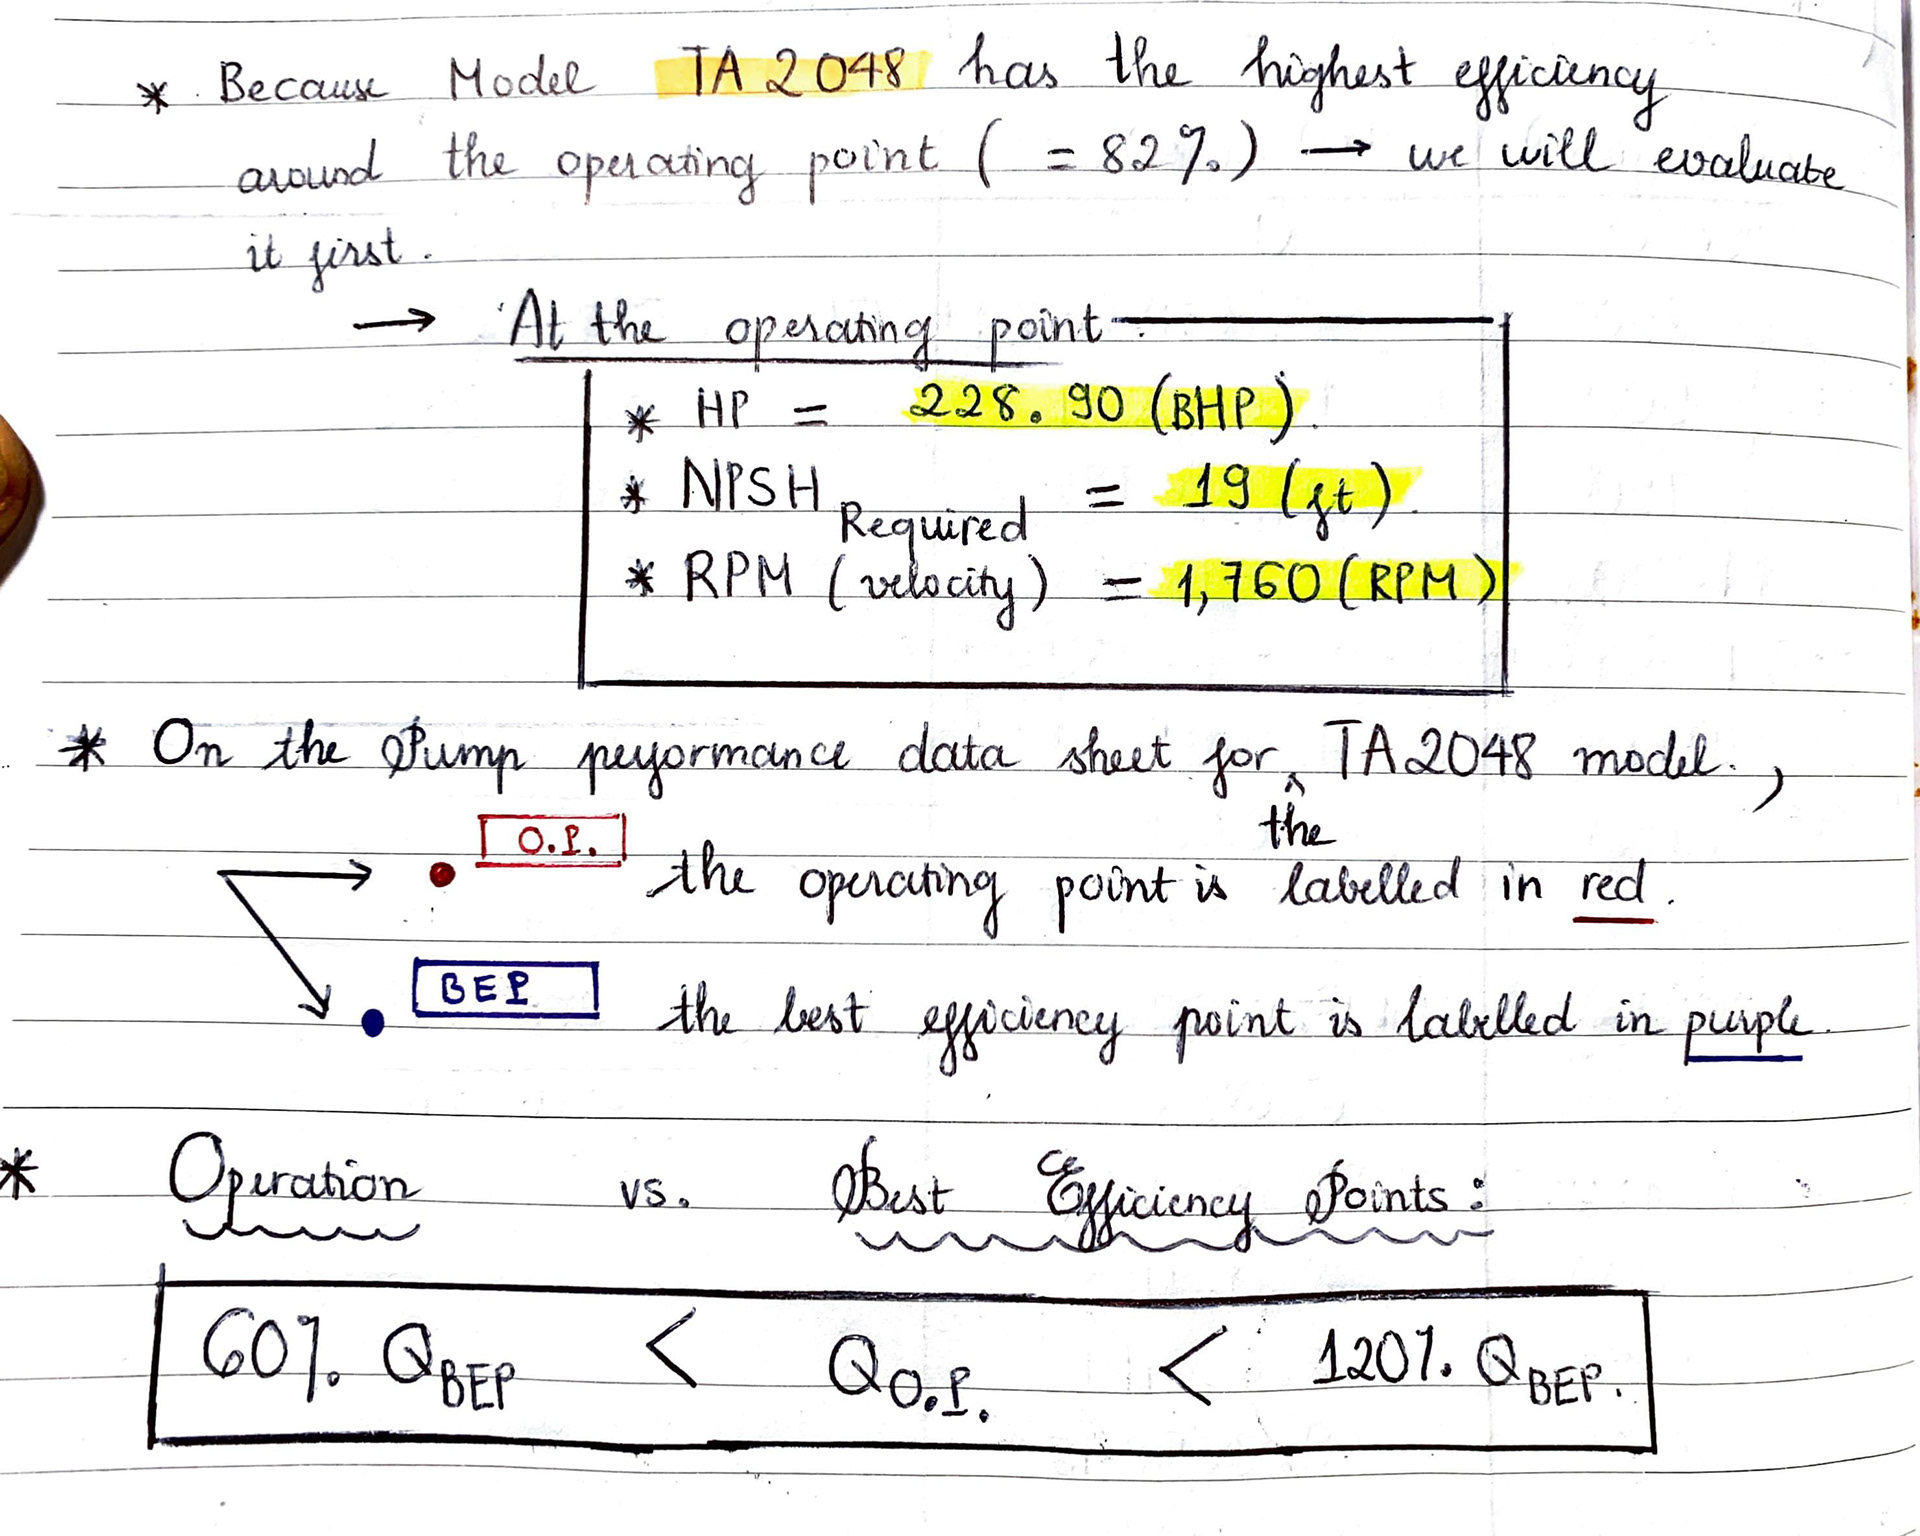 * Because Model TA 2048 has the highest efficiency
around the operating point ( = 82%.) → we will evaluate
it first.
→ At the operating point:
* HP = 228.90 (BHP).
* NPSH Required = 19 (ft).
* RPM (velocity) = 1,760 (RPM)
* On the Pump performance data sheet for ^ the TA2048 model.,
→ • O.P. the operating point is labelled in red.
• BEP the best efficiency point is labelled in purple.
* Operation vs. Best Efficiency Points:
60%. QBEP < QO.P. < 120%. QBEP.